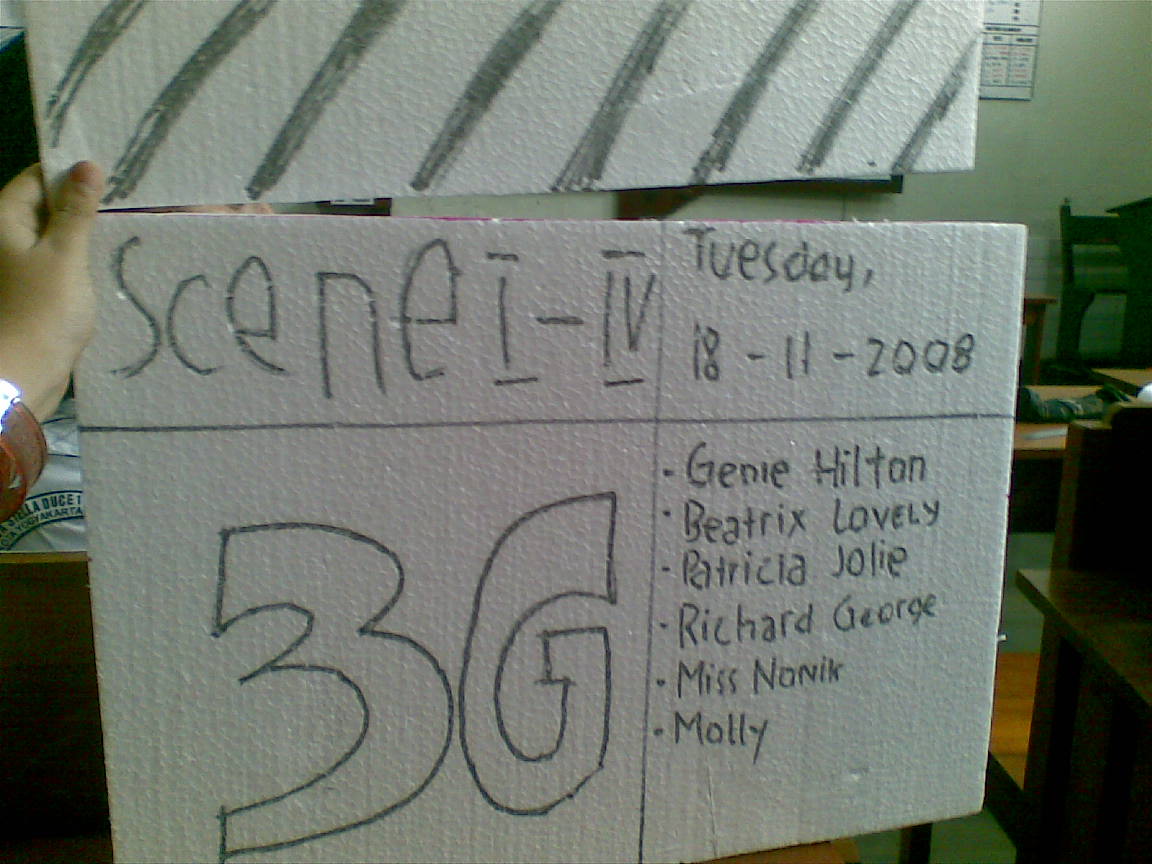 Scene I - IV
Tuesday,
18 - 11 - 2008
3G
• Genie Hilton
• Beatrix LOVELY
• Patricia Jolie
• Richard George
• Miss Nonik
• Molly
STELLA DUCE 1
YOGYAKARTA